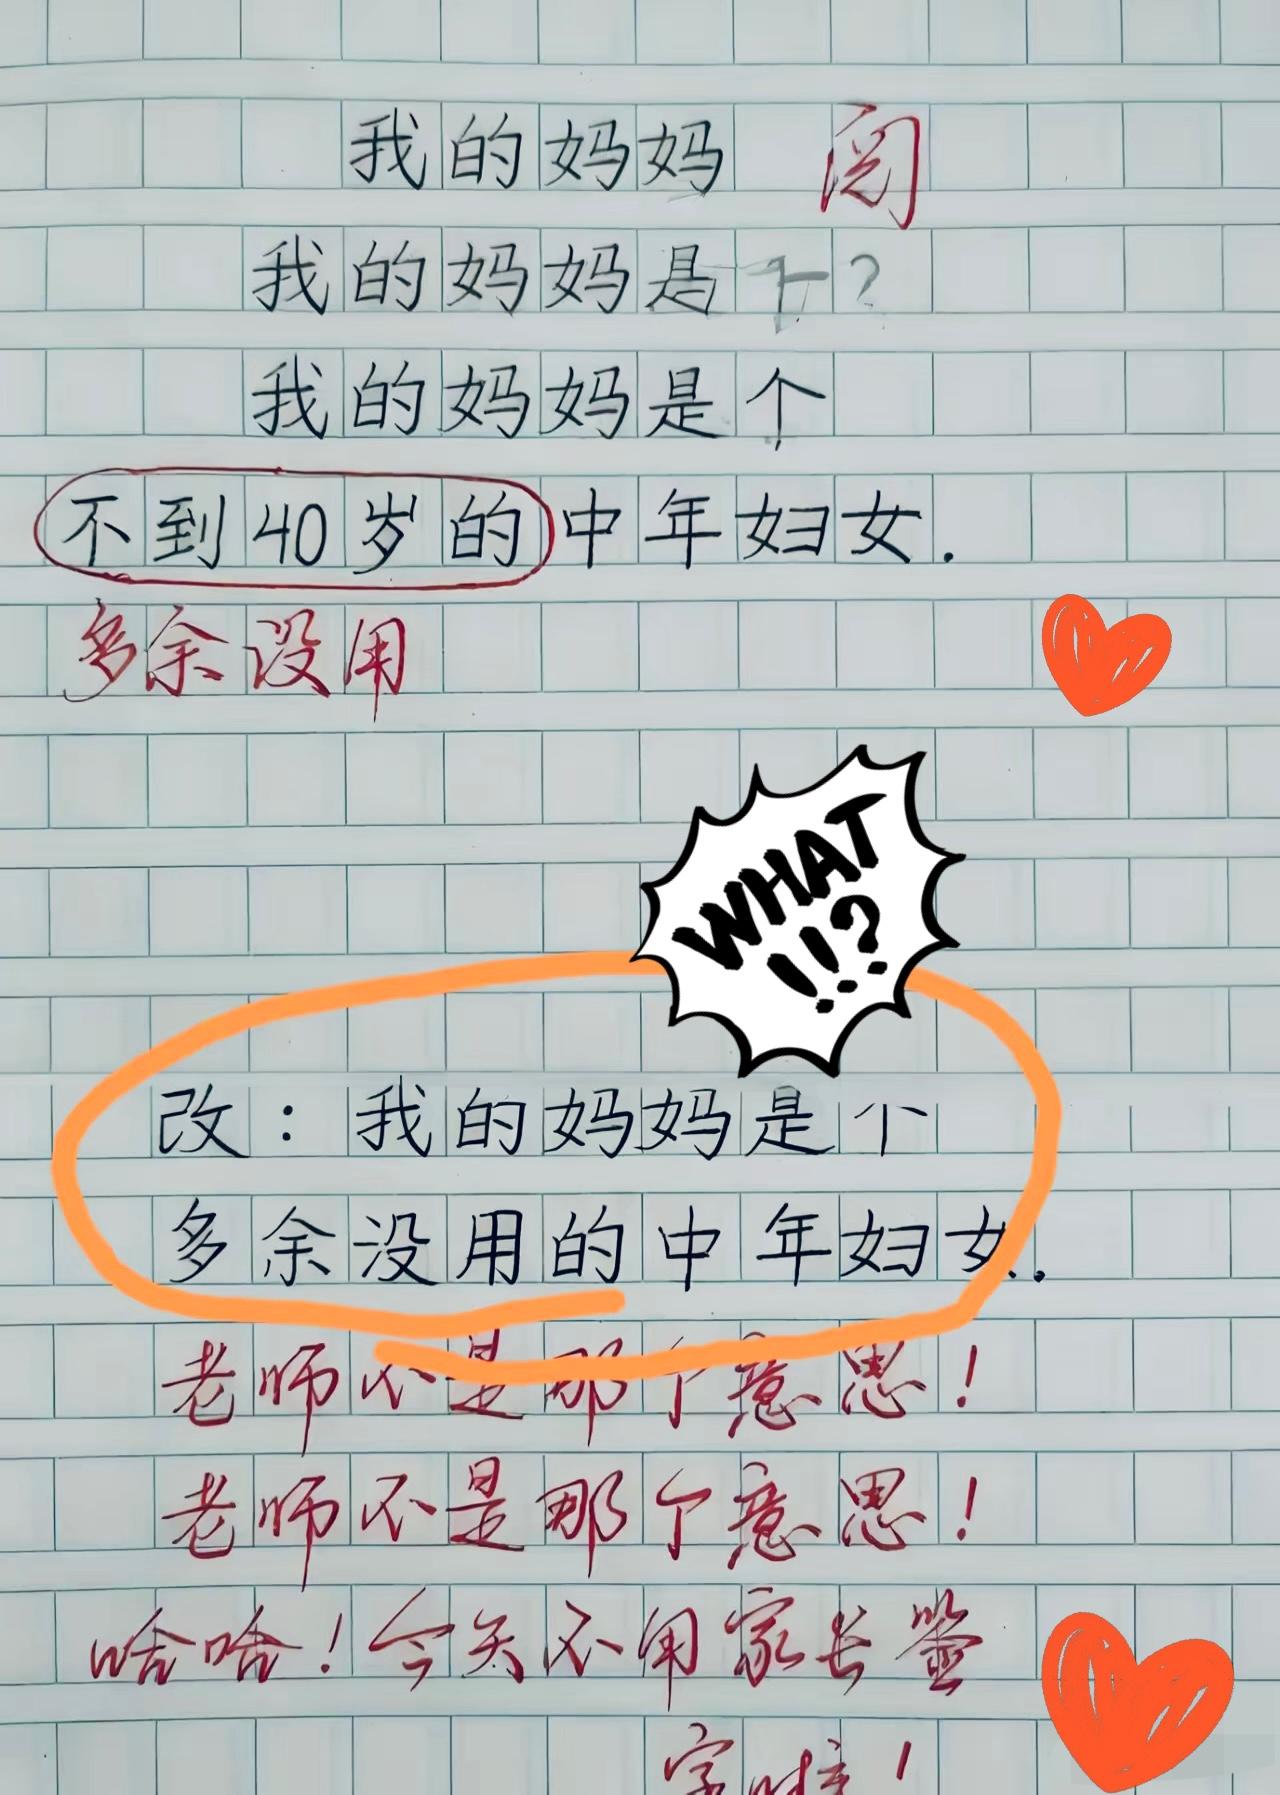 我的妈妈 阅
我的妈妈是个?
我的妈妈是个
不到40岁的中年妇女.
多余没用
WHAT
!!?
改:我的妈妈是个
多余没用的中年妇女.
老师不是那个意思!
老师不是那个意思!
哈哈!今天不用家长签
字啦!